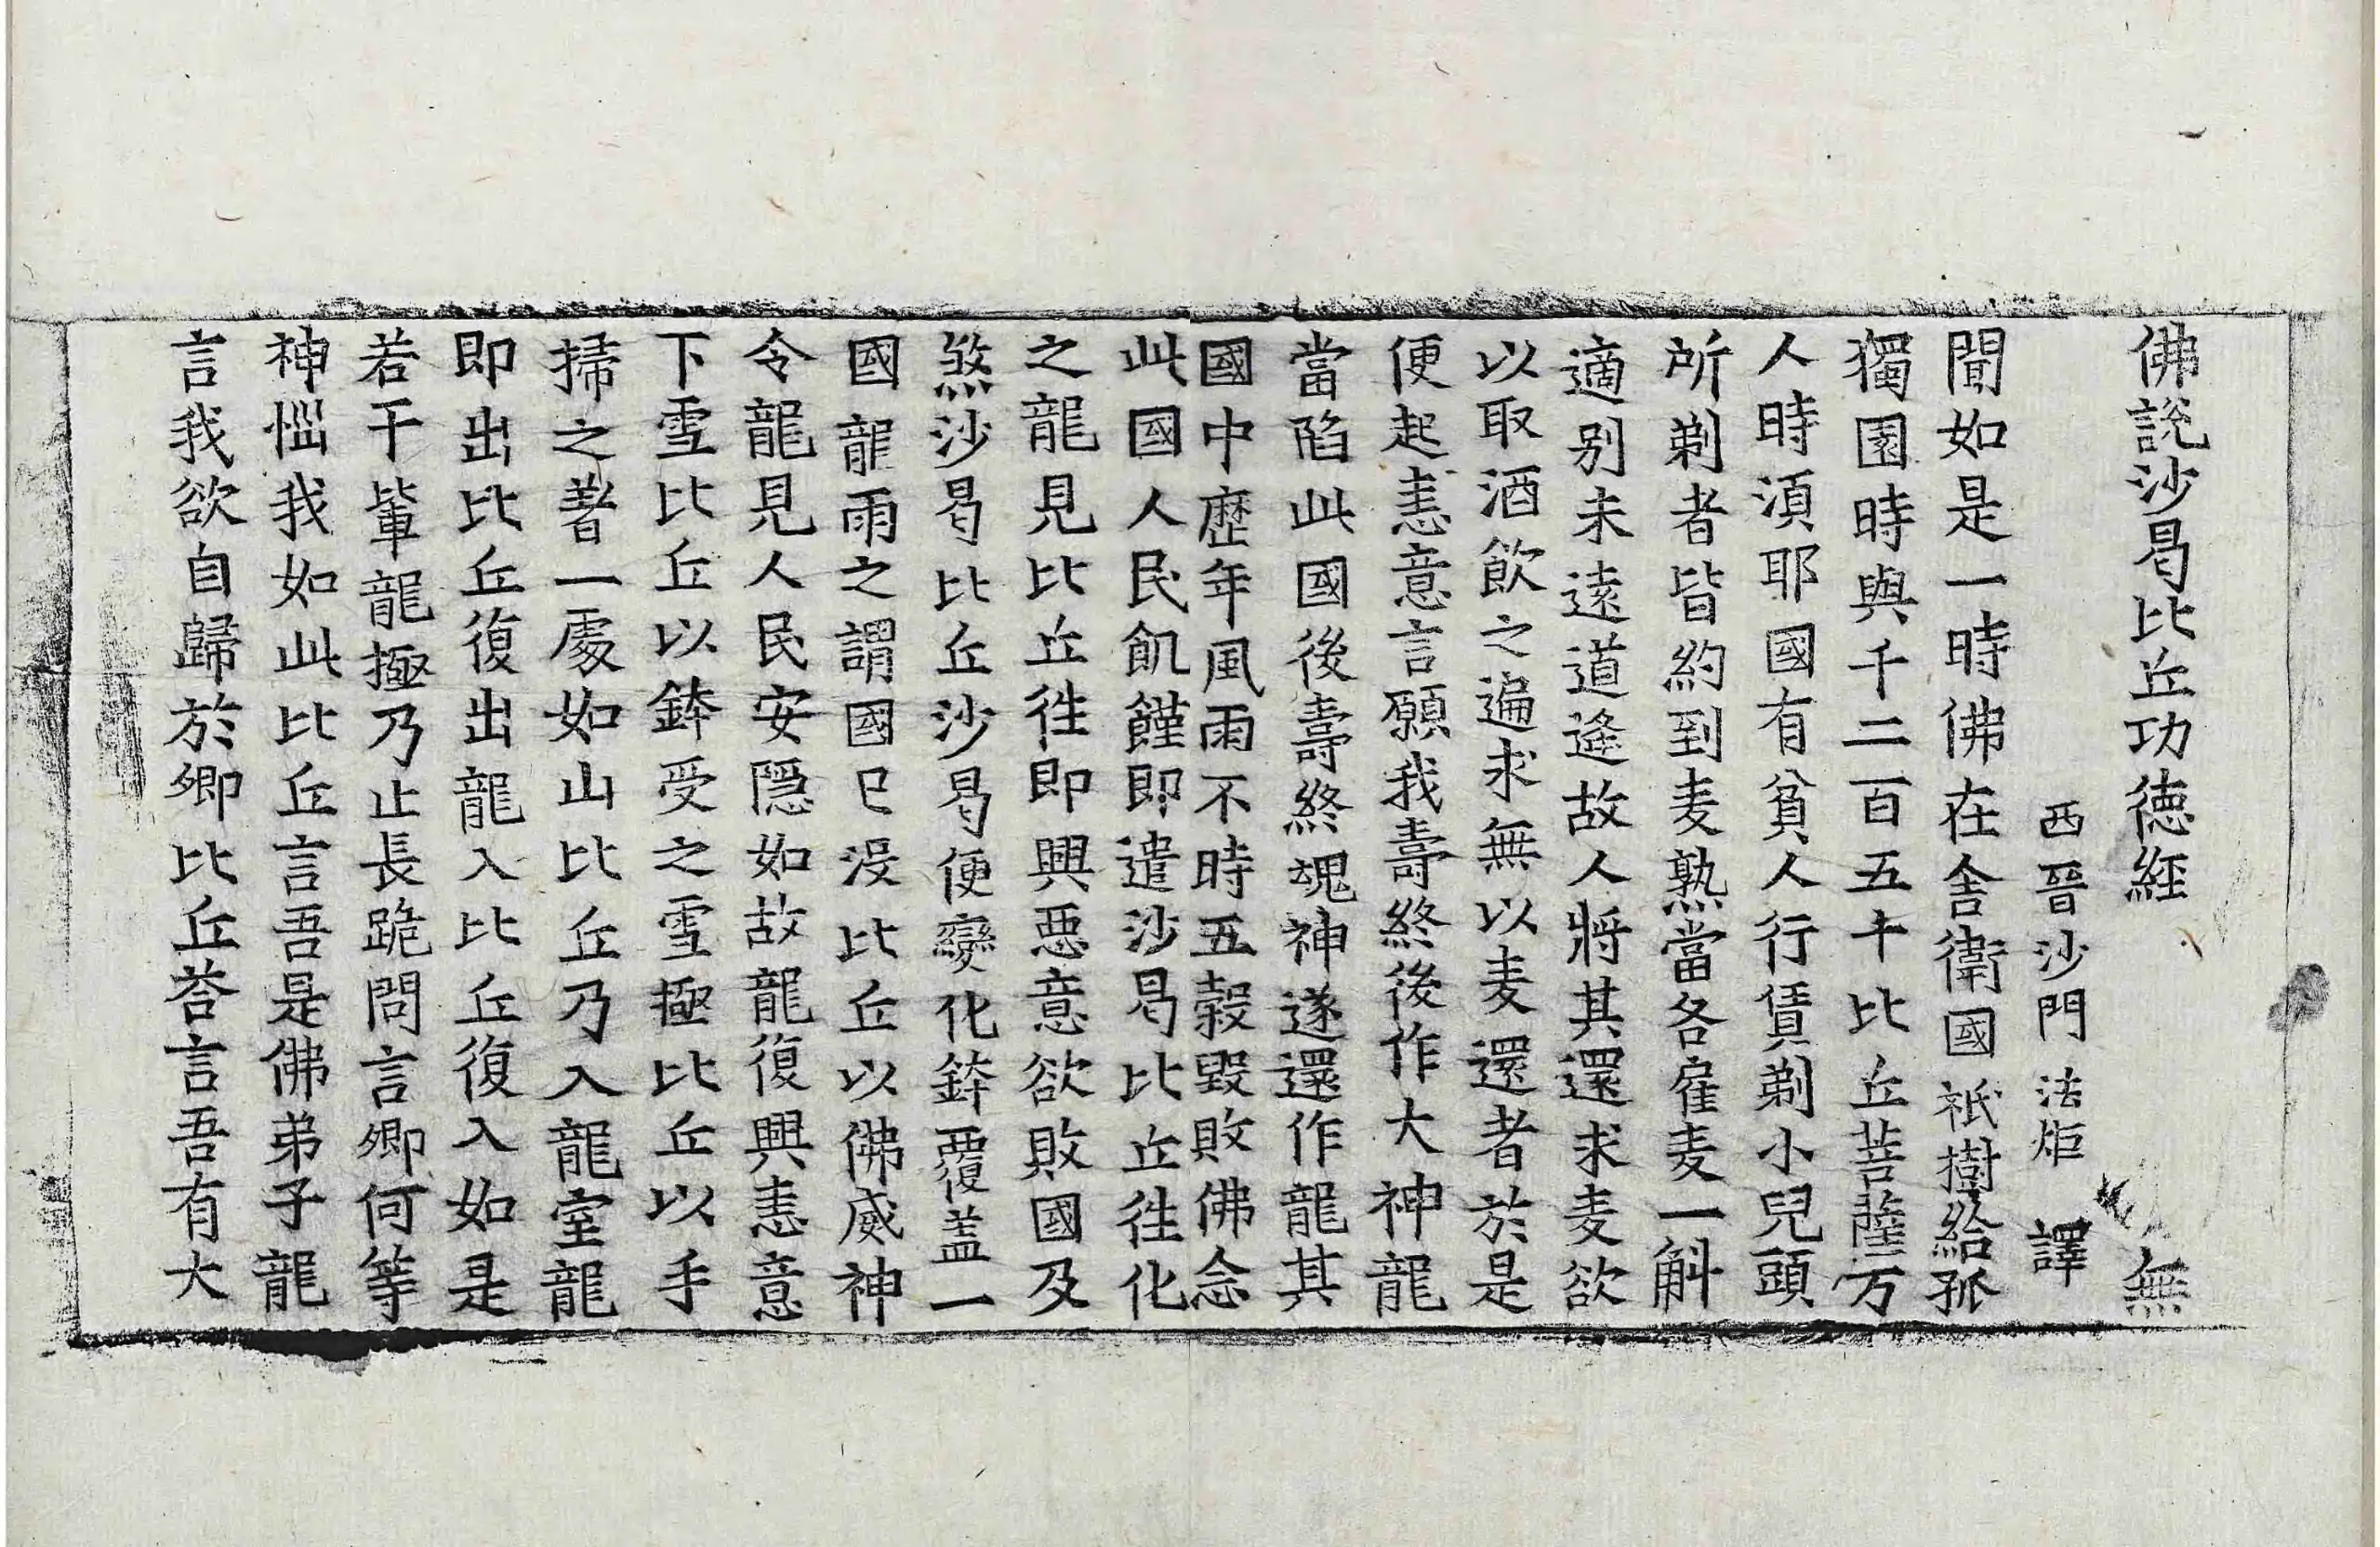 佛說沙曷比丘功徳經 無
西晉沙門法炬 譯
聞如是一時佛在舍衛國祇樹給孤
獨園時與千二百五十比丘菩薩万
人時湏耶國有貧人行賃剃小兒頭
所剃者皆約到麦熟當各雇麦一斛
適别未遠道逢故人將其還求麦欲
以取酒飲之遍求無以麦還者於是
便起恚意言願我壽終後作大神龍
當陷此國後壽終魂神遂還作龍其
國中歷年風雨不時五穀毀敗佛念
此國人民飢饉即遣沙曷比丘徃化
之龍見比丘徃即興惡意欲敗國及
煞沙曷比丘沙曷便變化鉢覆盖一
國龍雨之謂國已没比丘以佛威神
令龍見人民安隱如故龍復興恚意
下雪比丘以鉢受之雪極比丘以手
掃之著一處如山比丘乃入龍室龍
即出比丘復出龍入比丘復入如是
若干軰龍極乃止長跪問言卿何等
神惱我如此比丘言吾是佛弟子龍
言我欲自歸於卿比丘荅言吾有大